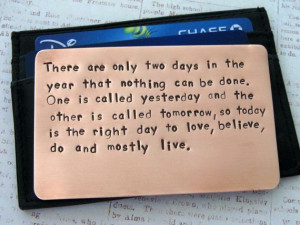 CHASE
There are only two days in the
year that nothing can be done.
One is called yesterday and the
other is called tomorrow, so today
is the right day to love, believe,
do and mostly live.